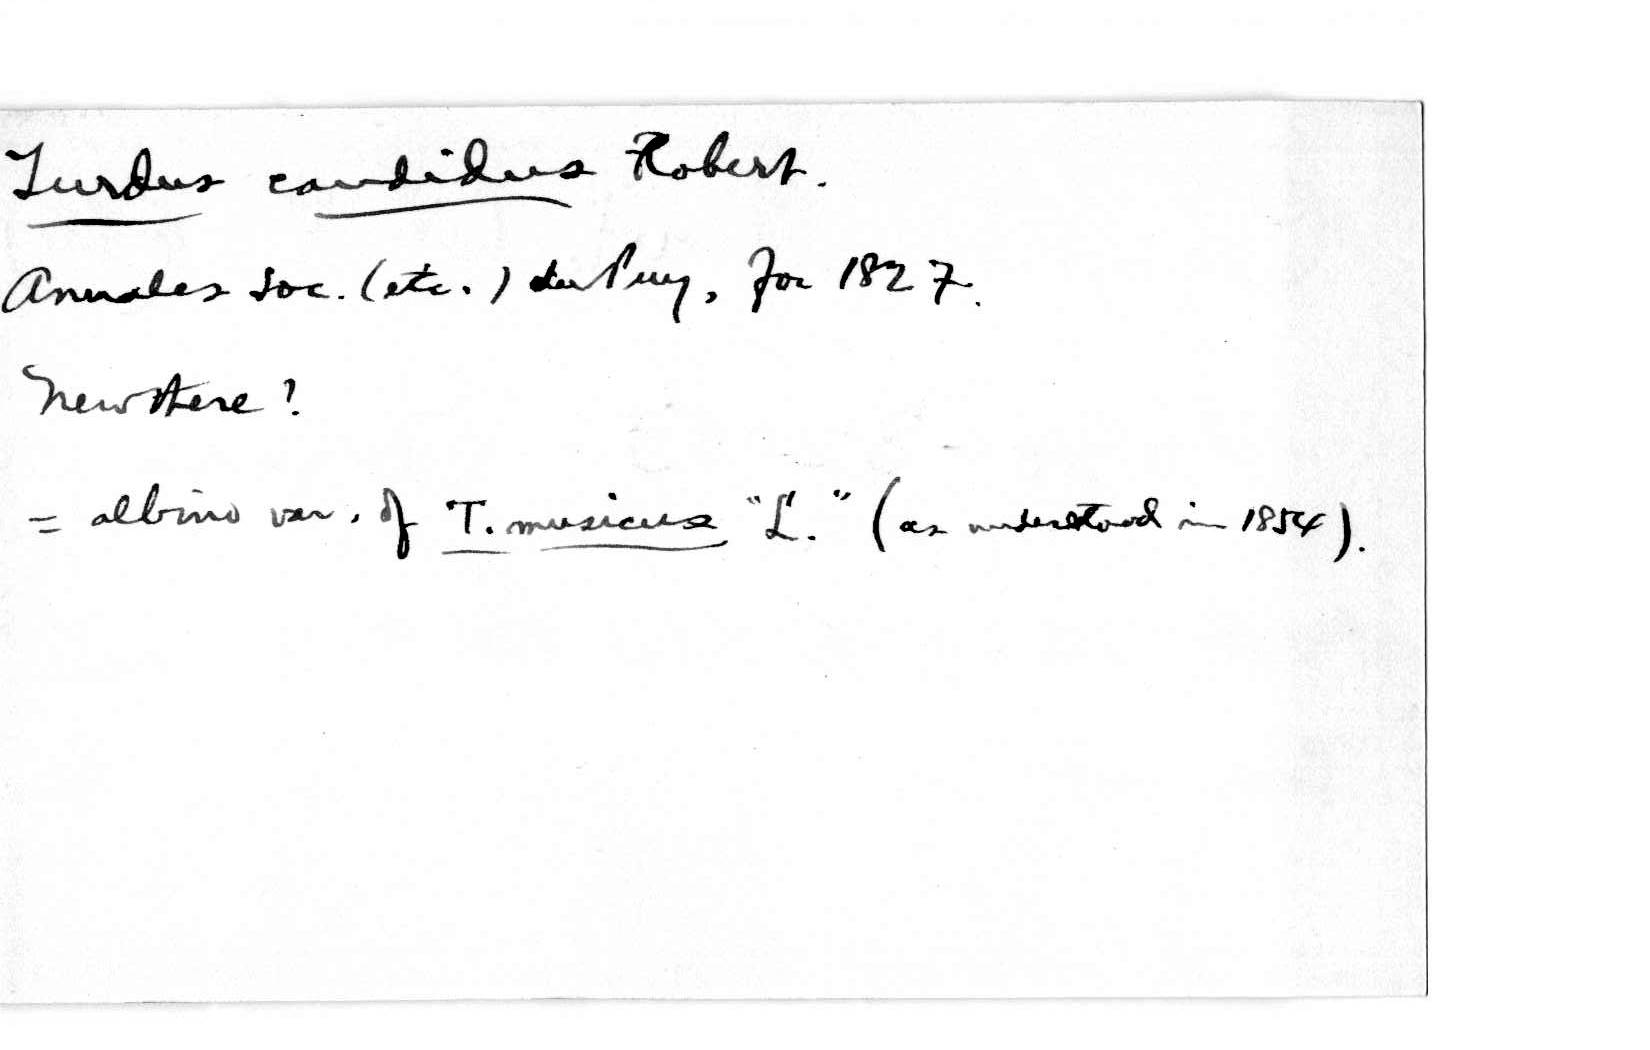 Turdus candidus Robert.
Annales Soc. (etc.) du Puy, for 1827.
New there?
= albino var. of T. musicus "L." (as understood in 1854).